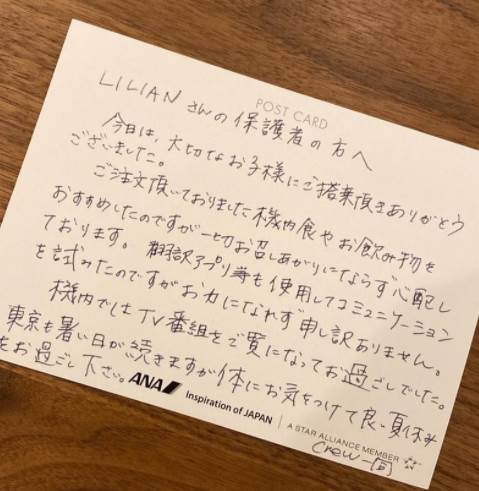 POST CARD
LILIANさんの保護者の方へ
今日は、大切なお子様にご搭乗頂きありがとう
ございました。
ご注文頂いておりました機内食やお飲み物を
おすすめしたのですが一切お召しあがりにならず心配し
ております。翻訳アプリ等も使用してコミュニケーション
を試みたのですがお力になれず申し訳ありません。
機内ではTV番組をご覧になってお過ごしでした。
東京も暑い日が続きますが体にお気をつけて良い夏休み
をお過ごし下さい。
ANA
Inspiration of JAPAN
A STAR ALLIANCE MEMBER
Crew一同